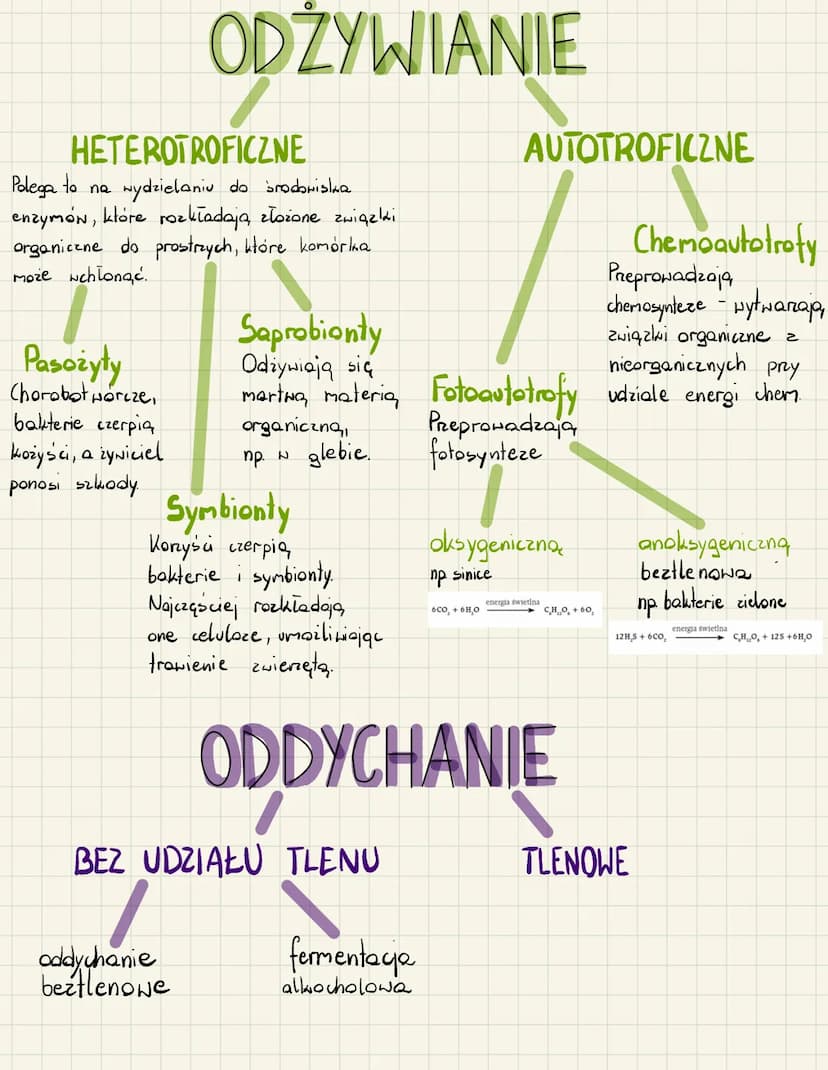 ODŻYWIANIE
HETEROTROFICZNE
Polega to na wydzielaniu do środowiska
enzymów, które rozkładają złożone związki
organiczne do prostrzych, które komórka
może wchłonąć.
Pasożyty
Chorobotwórcze,
bakterie czerpią
kożyści, a żywiciel
ponosi szkody.
Saprobionty
Odżywiają się
martwą materią
organiczną,
np. w glebie.
Symbionty
Korzyści czerpią
bakterie i symbionty.
Najczęściej rozkładają
one celuloze, umożliwiając
trawienie zwierzętą.
AUTOTROFICZNE
Chemoautotrofy
Przeprowadzają
chemosynteze - wytwarzają
związki organiczne z
nieorganicznych przy
udziale energi chem.
Fotoautotrofy
Przeprowadzają
fotosynteze
oksygeniczną
np sinice
6CO₂ + 6H₂O energia świetlna → C₆H₁₂O₆ + 6O₂
anoksygeniczną
beztlenowa
np. bakterie zielone
12H₂S + 6CO₂ energia świetlna → C₆H₁₂O₆ + 12S + 6H₂O
ODDYCHANIE
BEZ UDZIAŁU TLENU
oddychanie
beztlenowe
fermentacja
alkocholowa
TLENOWE